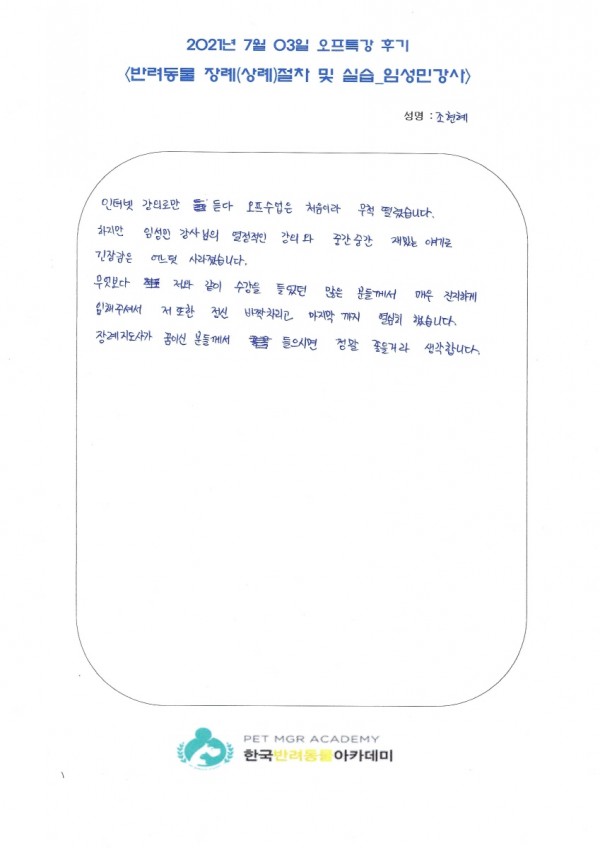 2021년 7월 03일 오프특강 후기
<반려동물 장례(상례)절차 및 실습_임성민강사>
성명 : 조현혜
인터넷 강의로만 듣다 오프수업은 처음이라 무척 떨렸습니다.
하지만 임성민 강사님의 열정적인 강의와 중간중간 재밌는 얘기로
긴장감은 어느덧 사라졌습니다.
무엇보다 저와 같이 수강을 들었던 많은 분들께서 매우 진지하게
임해주셔서 저 또한 정신 바짝차리고 마지막까지 열심히 했습니다.
장례지도사가 꿈이신 분들께서 들으시면 정말 좋을거라 생각합니다.
PET MGR ACADEMY
한국반려동물아카데미